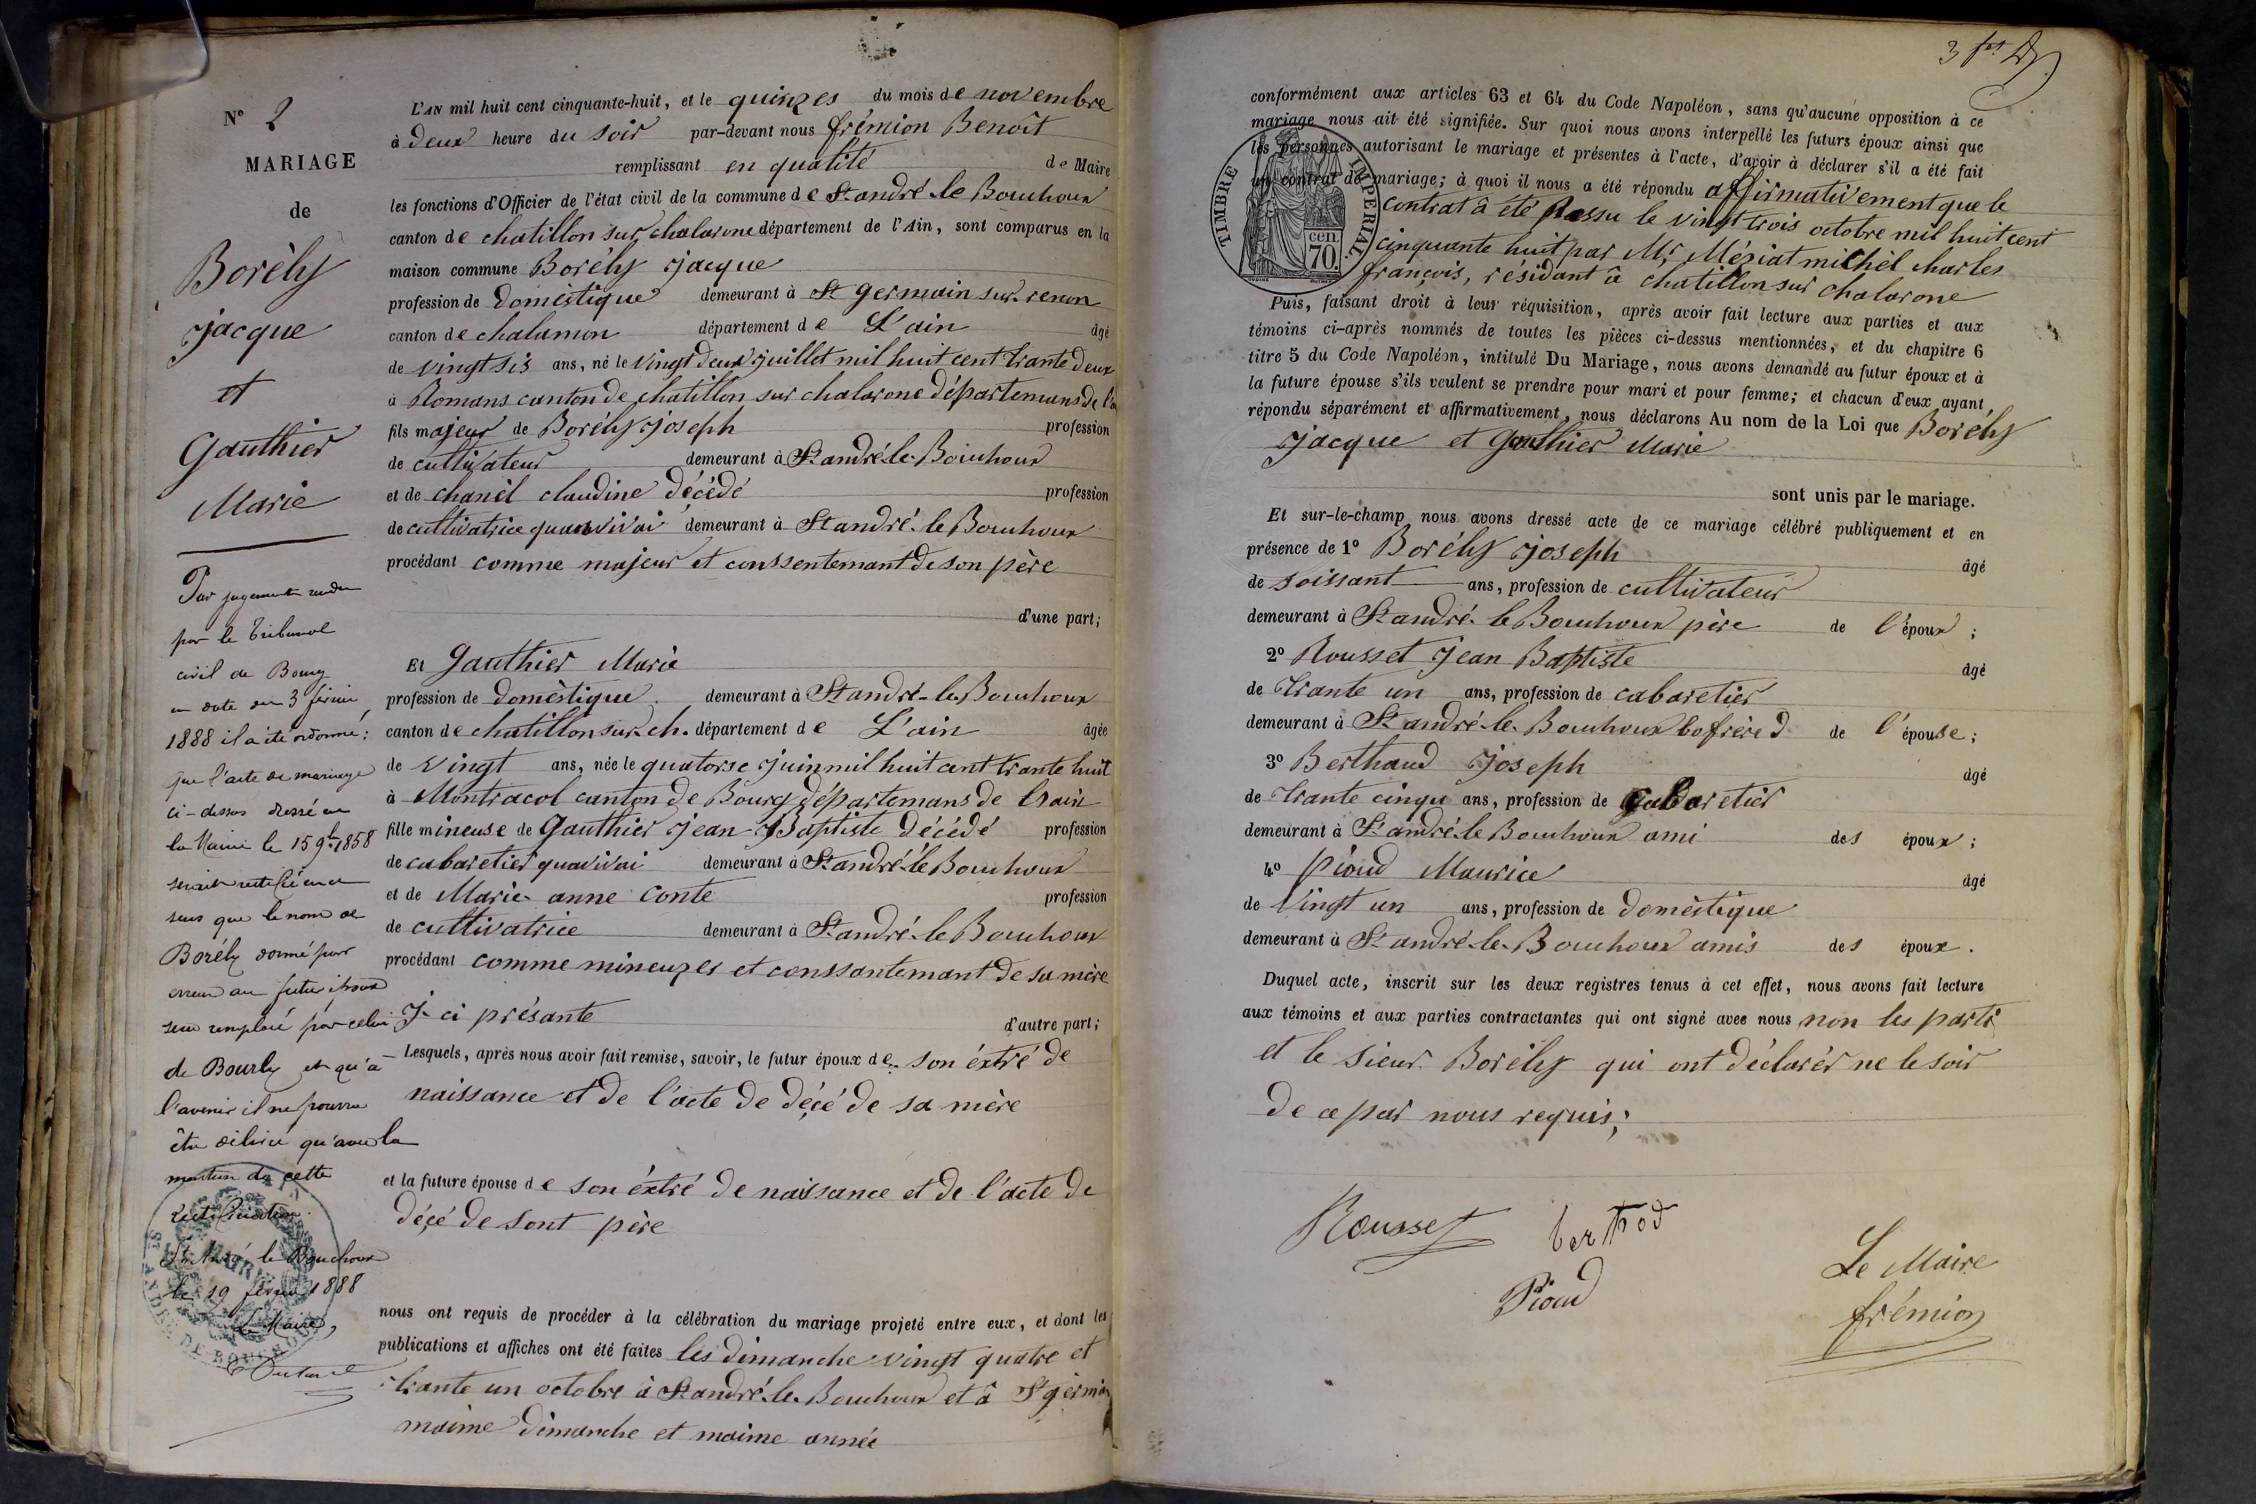 N° 2
MARIAGE
de
Borély
jacque
et
Gauthier
Marie
Par jugement rendu
par le Tribunal
civil de Bourg
en date du 3 février
1888 il a été ordonné :
que l'acte de mariage
ci-dessus dressé en
la Mairie le 15 9bre 1858
serait rectifié en ce
sens que le nom de
Borély donné par
erreur au futur époux
sera remplacé par celui
de Bourly et qu'à
l'avenir il ne pourra
être délivré qu'avec la
mention de cette
rectification.
St André le Bouchoux
le 19 février 1888
Le Maire,
L'AN mil huit cent cinquante-huit, et le quinzes du mois de novembre
à deux heure du soir par-devant nous frémion Benoît
remplissant en qualité de Maire
les fonctions d'Officier de l'état civil de la commune de St andré le Bouchoux
canton de chatillon sur chalarone département de l'Ain, sont comparus en la
maison commune Borély jacque
profession de domèstique demeurant à St germain sur renon
canton de chalamon département de L'ain âgé
de vingt sis ans, né le vingt deux juillet mil huit cent trante deux
à Romans canton de chatillon sur chalarone départemans de l'a
fils majeur de Borély joseph profession
de cultivateur demeurant à St andré le Bouchoux
et de chanèl claudine décédé profession
de cultivatrice quan vivai demeurant à St andré le Bouchoux
procédant comme majeur et conssentemant de son père
d'une part;
Et Gauthier Marie
profession de domèstique demeurant à St andré le Bouchoux
canton de chatillon sur ch. département de L'ain âgée
de vingt ans, née le quatorse juin mil huit cent trante huit
à Montracol canton de Bourg départemans de l'ain
fille mineuse de Gauthier jean Baptiste décédé profession
de cabaretier quavivai demeurant à St andré le Bouchoux
et de Marie anne Conte profession
de cultivatrice demeurant à St andré le Bouchoux
procédant comme mineuzes et conssantemant de sa mère
J-ci présante d'autre part;
Lesquels, après nous avoir fait remise, savoir, le futur époux de son éxtré de
naissance et de l'acte de déçé de sa mère
et la future épouse de son éxtré de naissance et de l'acte de
déçé de sont père
nous ont requis de procéder à la célébration du mariage projeté entre eux, et dont les
publications et affiches ont été faites les dimanche vingt quatre et
trante un octobre à St andré le Bouchoux et â St gèrmin
maime dimanche et maime année
3 fs
conformément aux articles 63 et 64 du Code Napoléon, sans qu'aucune opposition à ce
mariage nous ait été signifiée. Sur quoi nous avons interpellé les futurs époux ainsi que
les personnes autorisant le mariage et présentes à l'acte, d'avoir à déclarer s'il a été fait
un contrat de mariage; à quoi il nous a été répondu affirmativement que le
contrat â été passu le vingt trois octobre mil huit cent
cinquante huit par Mr Méziat michèl charles
françois, résidant â chatillon sur chalarone
TIMBRE IMPERIAL
cen.
70.
Puis, faisant droit à leur réquisition, après avoir fait lecture aux parties et aux
témoins ci-après nommés de toutes les pièces ci-dessus mentionnées, et du chapitre 6
titre 5 du Code Napoléon, intitulé Du Mariage, nous avons demandé au futur époux et à
la future épouse s'ils veulent se prendre pour mari et pour femme; et chacun d'eux ayant
répondu séparément et affirmativement, nous déclarons Au nom de la Loi que Borély
jacque et Gauthier Marie
sont unis par le mariage.
Et sur-le-champ nous avons dressé acte de ce mariage célébré publiquement et en
présence de 1° Borély joseph âgé
de soissant ans, profession de cultivateur
demeurant à St andré le Bouchoux père de l'époux ;
2° Rousset jean Baptiste âgé
de trante un ans, profession de cabaretier
demeurant à St andré le Bouchoux bofrère d de l'épouse ;
3° Berthaud joseph âgé
de trante cinqu ans, profession de cabaretier
demeurant à St andré le Bouchoux ami des époux ;
4° pioud Maurice âgé
de vingt un ans, profession de domèstique
demeurant à St andré le Bouchoux amis des époux.
Duquel acte, inscrit sur les deux registres tenus à cet effet, nous avons fait lecture
aux témoins et aux parties contractantes qui ont signé avec nous non les parti
et le sieur Borély qui ont déclarér ne le soir
de ce par nous requis;
Rousset berthod
Pioud
Le Maire
frémion